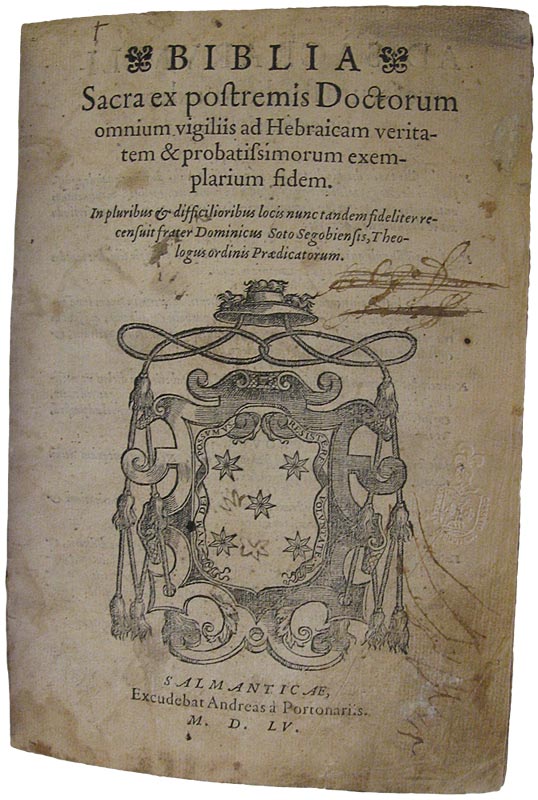 BIBLIA
Sacra ex poſtremis Doctorum
omnium vigiliis ad Hebraicam verita-
tem & probatiſsimorum exem-
plarium fidem.
In pluribus & difficilioribus locis nunc tandem fideliter re-
cenſuit frater Dominicus Soto Segobienſis, Theo-
logus ordinis Prædicatorum.
SALMANTICAE,
Excudebat Andreas à Portonariis.
M. D. LV.